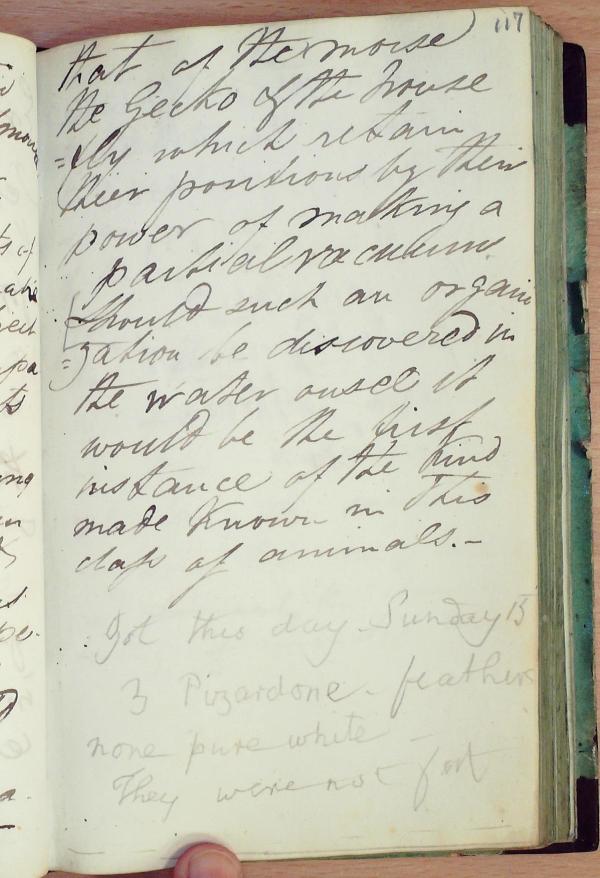 117
that of the morse
the Gecko & the house
=fly which retain
their positions by their
power of making a
partial vacuum.
[should such an organi
=zation be discovered in
the water ousel it
would be the first
instance of the kind
made known in this
class of animals.–
got this day Sunday 15
3 Pizardone - feathers
none pure white –
They were not